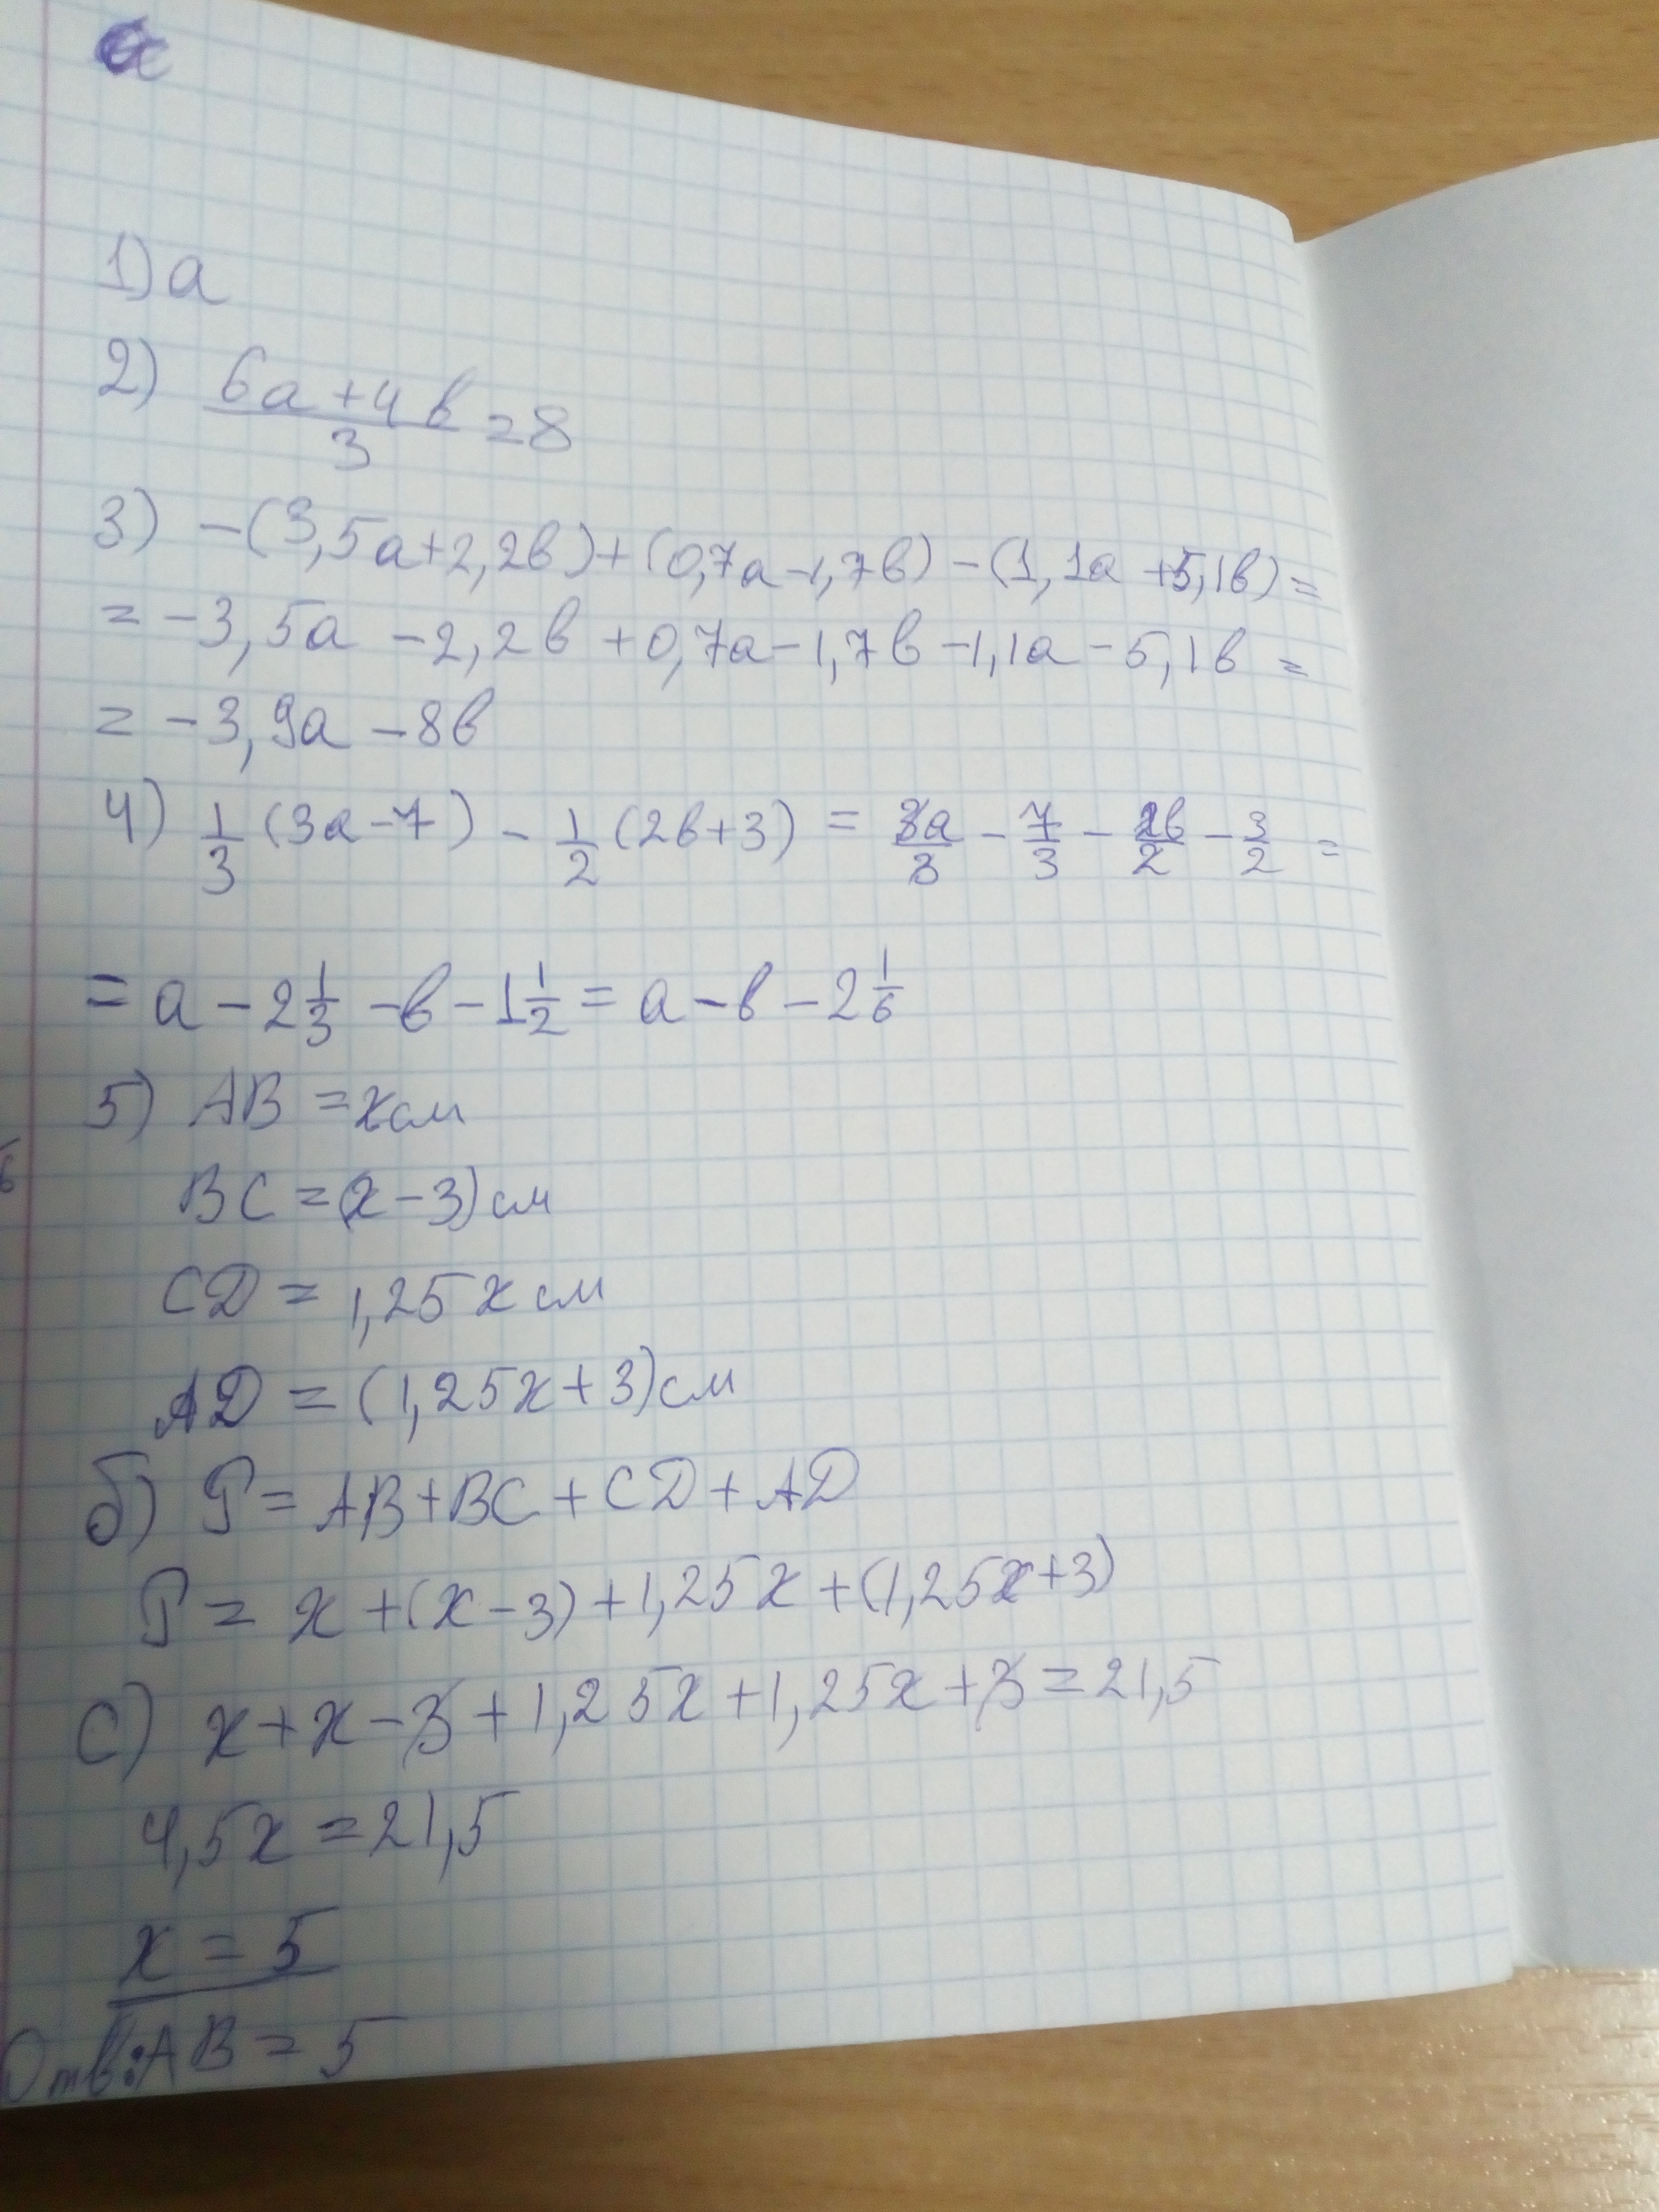 1) a
2) (6a+4b)/3 = 8
3) -(3,5a+2,2b)+(0,7a-1,7b)-(1,1a+5,1b)=
= -3,5a -2,2b +0,7a-1,7b-1,1a-5,1b =
= -3,9a -8b
4) 1/3 (3a-7) - 1/2 (2b+3) = 3a/3 - 7/3 - 2b/2 - 3/2 =
= a - 2 1/3 - b - 1 1/2 = a - b - 2 1/6
5) AB = x см
BC = (x-3) см
CD = 1,25x см
AD = (1,25x+3) см
б) P = AB+BC+CD+AD
P = x+(x-3)+1,25x+(1,25x+3)
c) x+x-3+1,25x+1,25x+3=21,5
4,5x=21,5
x = 5
Отв: AB = 5